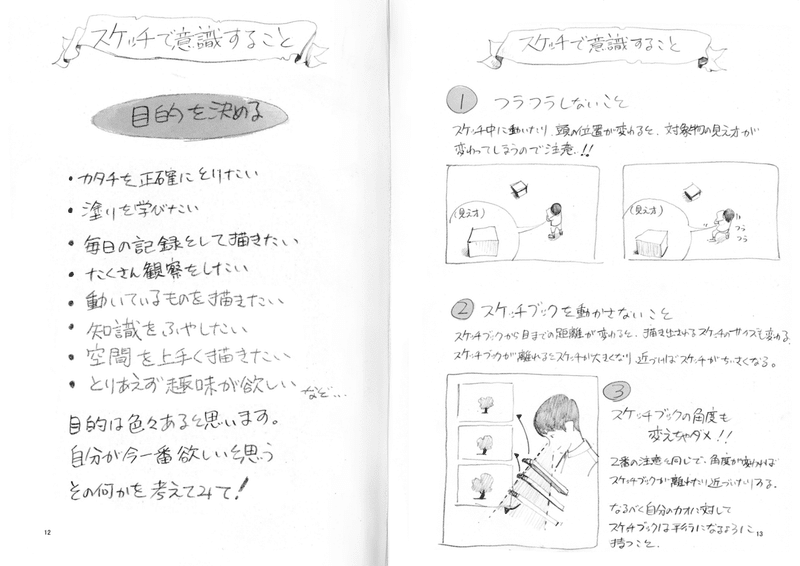 スケッチで意識すること
目的を決める
・カタチを正確にとりたい
・塗りを学びたい
・毎日の記録として描きたい
・たくさん観察をしたい
・動いているものを描きたい
・知識をふやしたい
・空間を上手く描きたい
・とりあえず趣味が欲しい など…
目的は色々あると思います。
自分が今一番欲しいと思う
その何かを考えてみて!
12
スケッチで意識すること
1 フラフラしないこと
スケッチ中に動いたり、頭の位置が変わると、対象物の見え方が
変わってしまうので注意..!!
(見え方)
(見え方)
フラ
フラ
2 スケッチブックを動かさないこと
スケッチブックから目までの距離が変わると、描き出されるスケッチのサイズも変わる。
スケッチブックが離れるとスケッチが大きくなり、近づけばスケッチがちいさくなる。
3
スケッチブックの角度も
変えちゃダメ!!
2番の注意と同じで、角度が変われば
スケッチブックが離れたり近づいたりする。
なるべく自分のカオに対して
スケッチブックは平行になるように
持つこと。
13